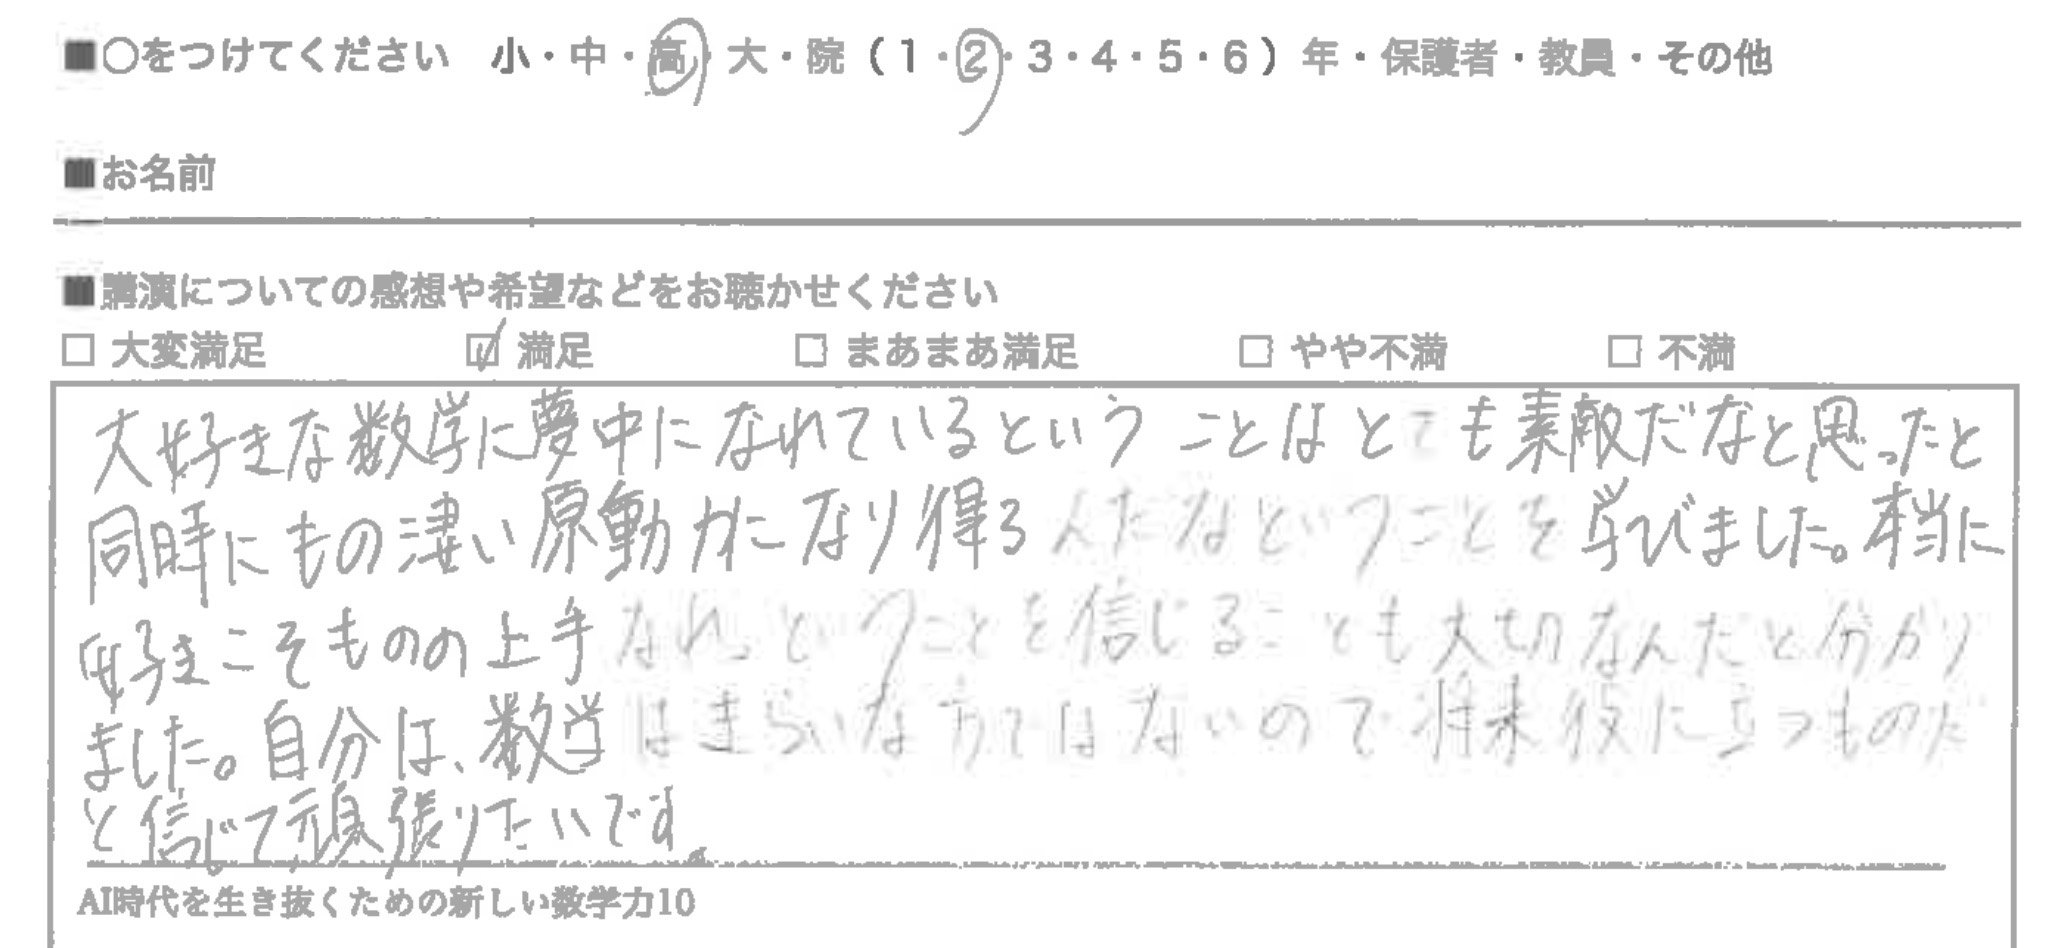 ■○をつけてください 小・中・高・大・院(1・2・3・4・5・6)年・保護者・教員・その他
■お名前
■講演についての感想や希望などをお聴かせください
□ 大変満足 ☑ 満足 □ まあまあ満足 □ やや不満 □ 不満
大好きな数学に夢中になれているということはとても素敵だなと思ったと
同時にもの凄い原動力になり得るんだなということを学びました。本当に
好きこそものの上手なれっということを信じることも大切なんだと分かり
ました。自分は、数学はきらいなわけではないので将来役に立つものだ
と信じて頑張りたいです。
AI時代を生き抜くための新しい数学力10